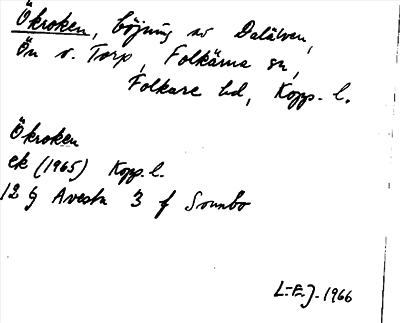 Ökroken, böjning av Dalälven,
Ön v. Torp, Folkärna sn,
Folkare hd, Kopp. l.
Ökroken
ek (1965) Kopp. l.
12 G Avesta 3 f Sonnbo
1966